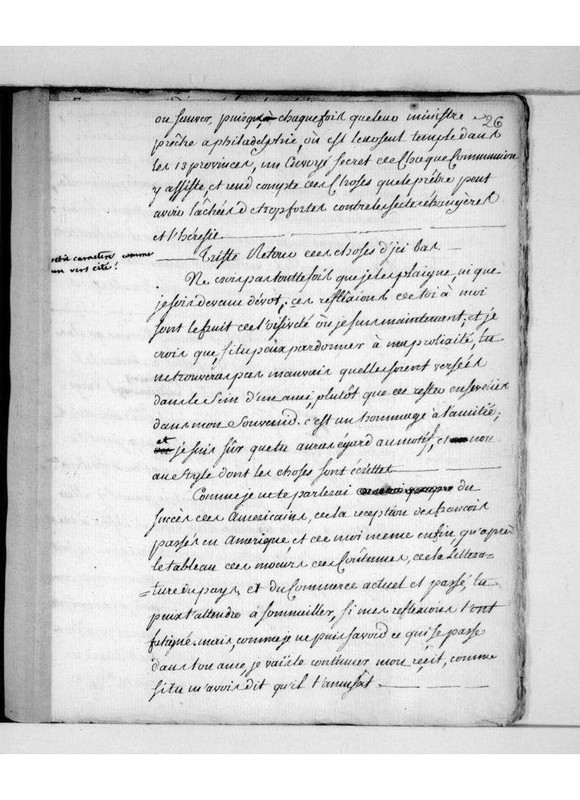 26
ou sauver, puisqu'à chaque fois que leur ministre
prêche a philadelphie, où est le seul temple dans
les 13 provinces, un Envoyé secret de Chaque Communion
y assiste et rend compte des Choses que le prêtre peut
avoir lâchées d trop fortes contre les sectes étrangères
et l'hérésie
petit caractere comme
un vers cité.
Triste Retour des choses d'ici bas.
Ne crois pas toutte fois que je les plaigne, ni que
je sois devenu dévot; ces reflexions de toi à moi
sont le fruit de l'oisiveté où je suis maintenant; et je
crois que, si tu peux pardonner à ma prolixité, tu
ne trouveras pas mauvais quelles soient versées
dans le sein d'un ami, plutôt que de rester ensevelies
dans mon souvenir. c'est un hommage à l'amitié;
et je suis sûr que tu auras égard au motif, et non
au style dont les choses sont écrittes
Comme je ne te parlerai du
succès des Americains, de la reception des francois
passés en Amerique et de moi même enfin, qu'après
le tableau des mœurs des Coûtumes, de la Littera-
=ture du pays, et du Commerce actuel et passé, tu
peux t'attendre à sommeiller, si mes reflexions t'ont
fatigué. mais, comme je ne puis savoir ce qui se passe
dans ton ame, je vais te continuer mon récit, comme
si tu m'avois dit qu'il t'amusât.